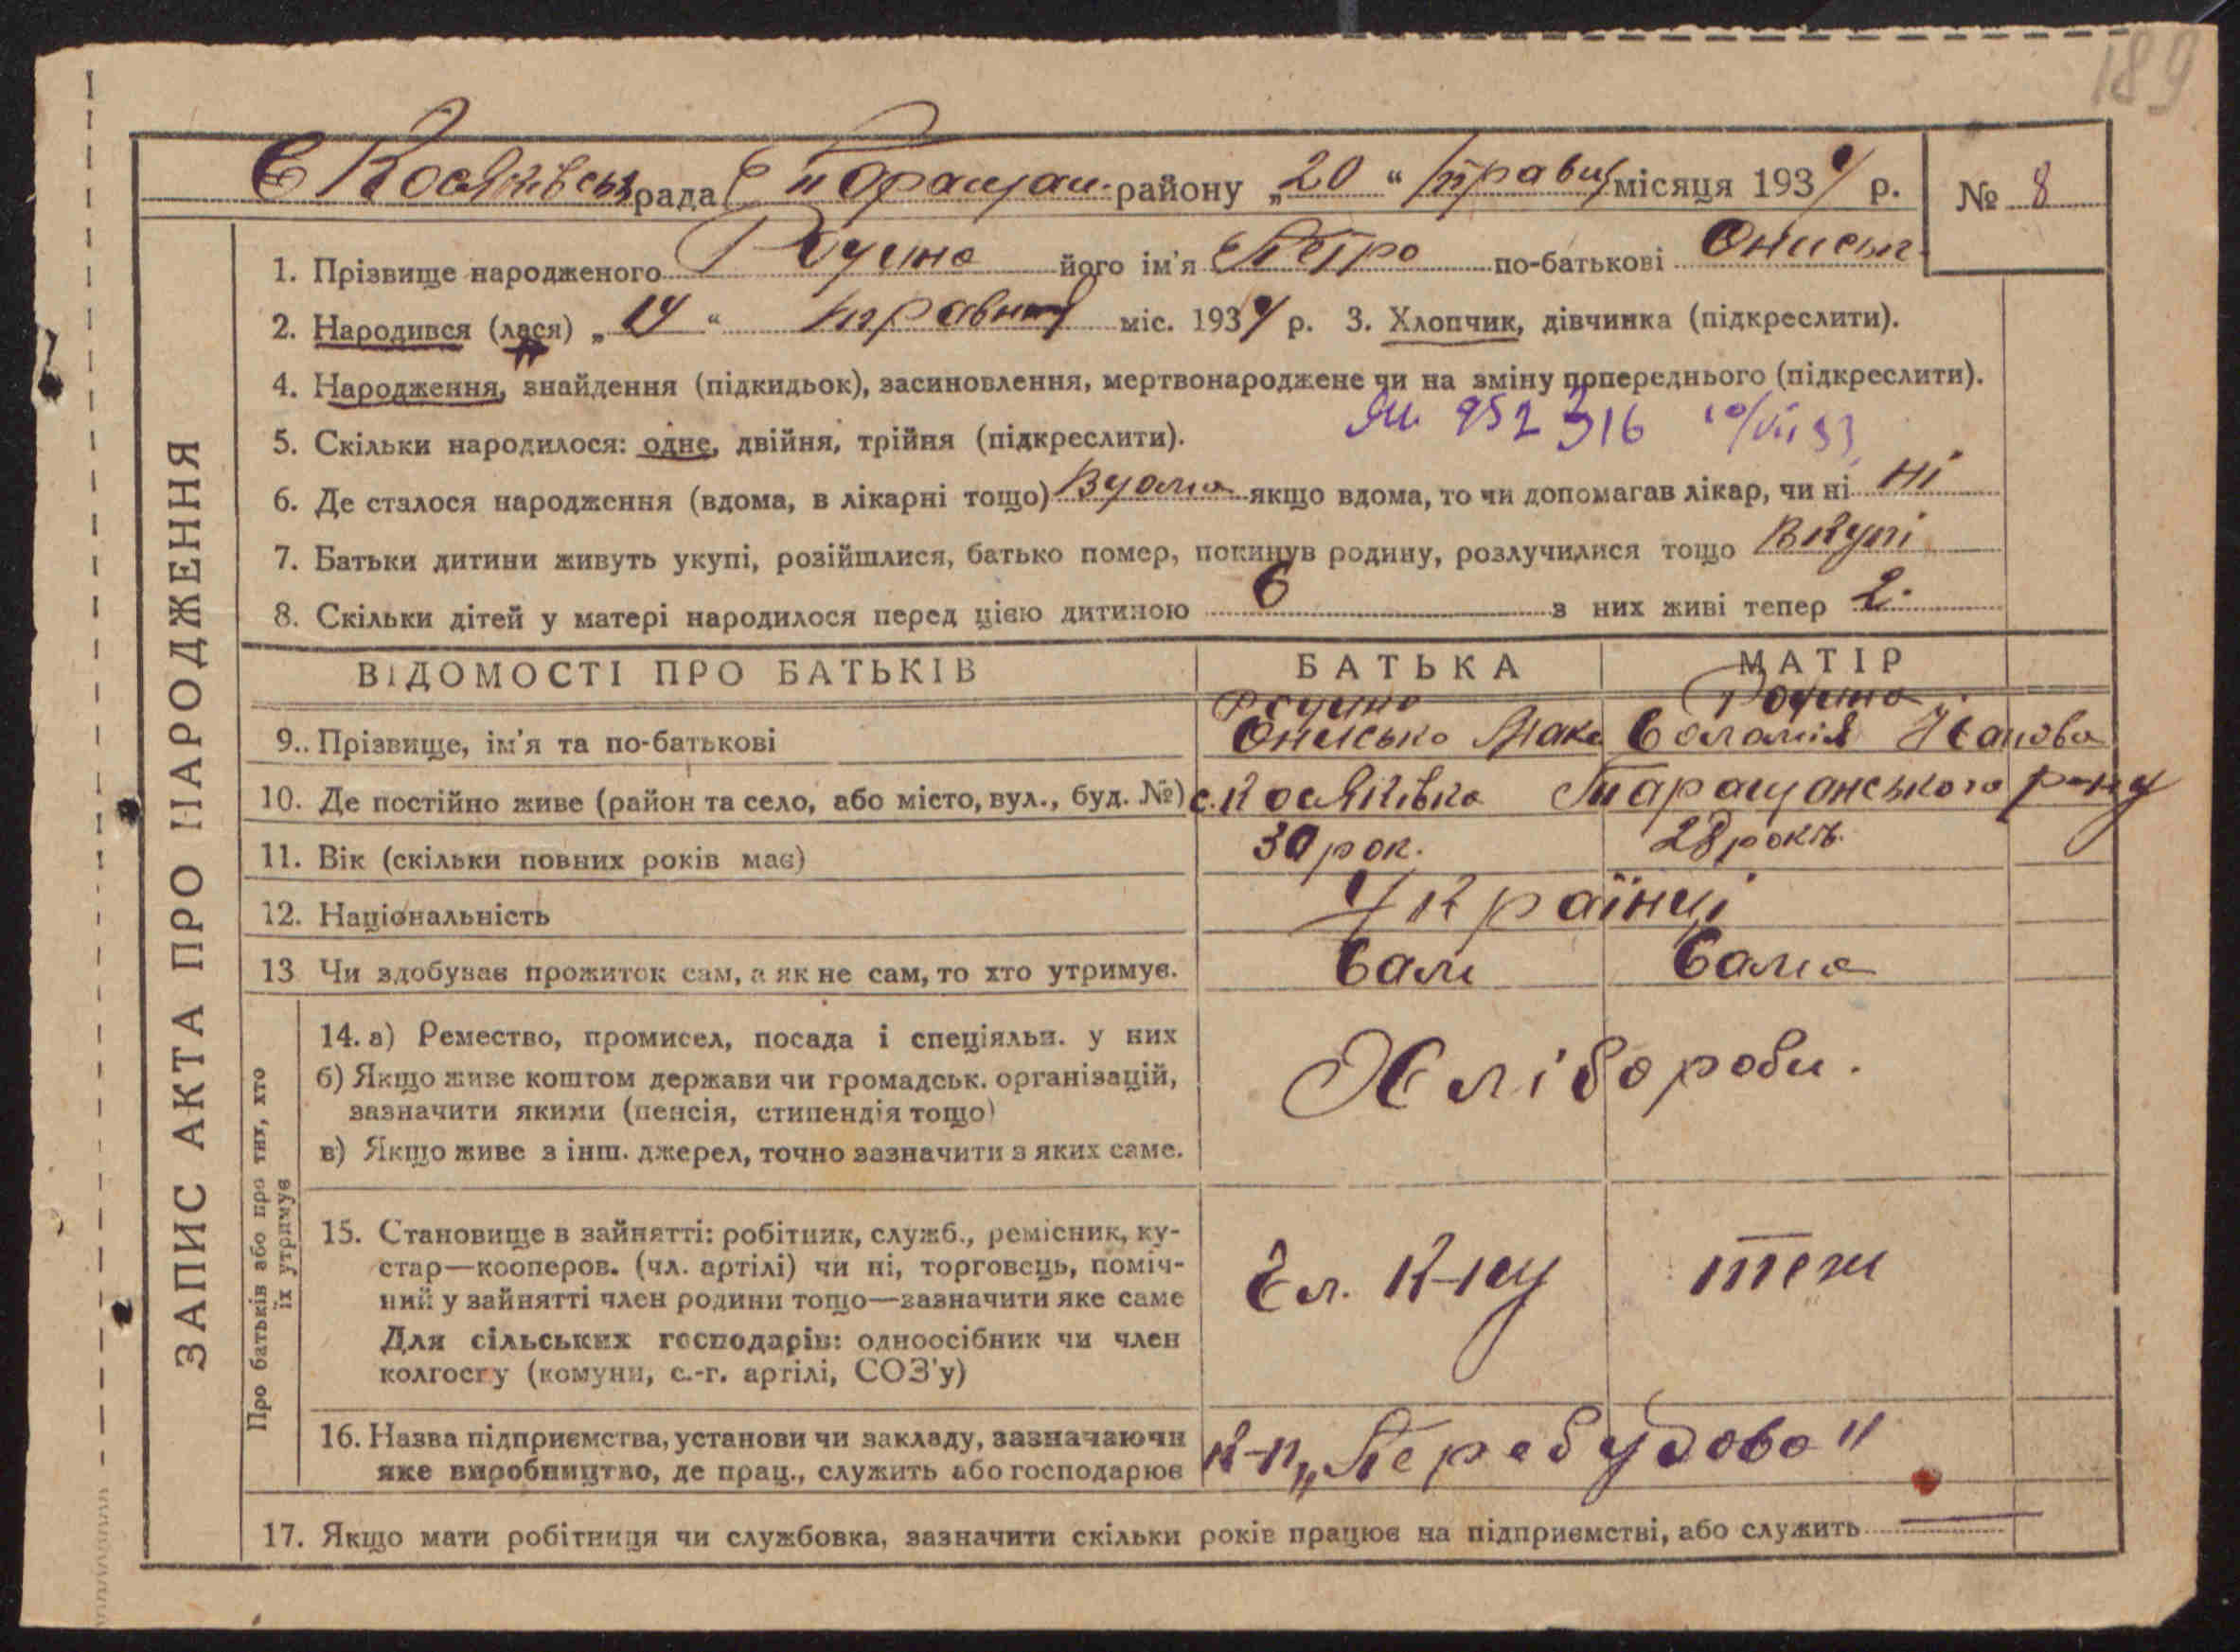 189
С Косяківська рада Таращан. району „20“ травня місяця 1934 р. № 8
ЗАПИС АКТА ПРО НАРОДЖЕННЯ
1. Прізвище народженого його ім'я Петро по-батькові Ониськ.
2. Народився (лася) „14“ травня міс. 1934 р. 3. Хлопчик, дівчинка (підкреслити).
4. Народження, знайдення (підкидьок), засиновлення, мертвонароджене чи на зміну попереднього (підкреслити).
952316
5. Скільки народилося: одне, двійня, трійня (підкреслити).
6. Де сталося народження (вдома, в лікарні тощо) Вдома якщо вдома, то чи допомагав лікар, чи ні ні
7. Батьки дитини живуть укупі, розійшлися, батько помер, покинув родину, розлучилися тощо Вкупі
8. Скільки дітей у матері народилося перед цією дитиною 6 з них живі тепер 2.
ВІДОМОСТІ ПРО БАТЬКІВ БАТЬКА МАТІР
9. Прізвище, ім'я та по-батькові Онисько Мака Соломія Іванова
10. Де постійно живе (район та село, або місто, вул., буд. №) с. Косяківка Таращанського р-ну
11. Вік (скільки повних років має) 30 рок. 28 років.
12. Національність Українці
13 Чи здобуває прожиток сам, а як не сам, то хто утримує. Сам Сама
Про батьків або про тих, хто
їх утримує
14. а) Ремество, промисел, посада і спеціяльн. у них
б) Якщо живе коштом держави чи громадськ. організацій,
зазначити якими (пенсія, стипендія тощо)
в) Якщо живе з інш. джерел, точно зазначити з яких саме.
Хлібороби.
15. Становище в зайнятті: робітник, служб., ремісник, ку-
стар—кооперов. (чл. артілі) чи ні, торговець, поміч-
ний у зайнятті член родини тощо—зазначити яке саме
Для сільських господарів: одноосібник чи член
колгоспу (комуни, с.-г. артілі, СОЗ'у)
Чл. к-гу теж
16. Назва підприємства, установи чи закладу, зазначаючи
яке виробництво, де прац., служить або господарює
к-п „Перебудова"
17. Якщо мати робітниця чи службовка, зазначити скільки років працює на підприємстві, або служить —